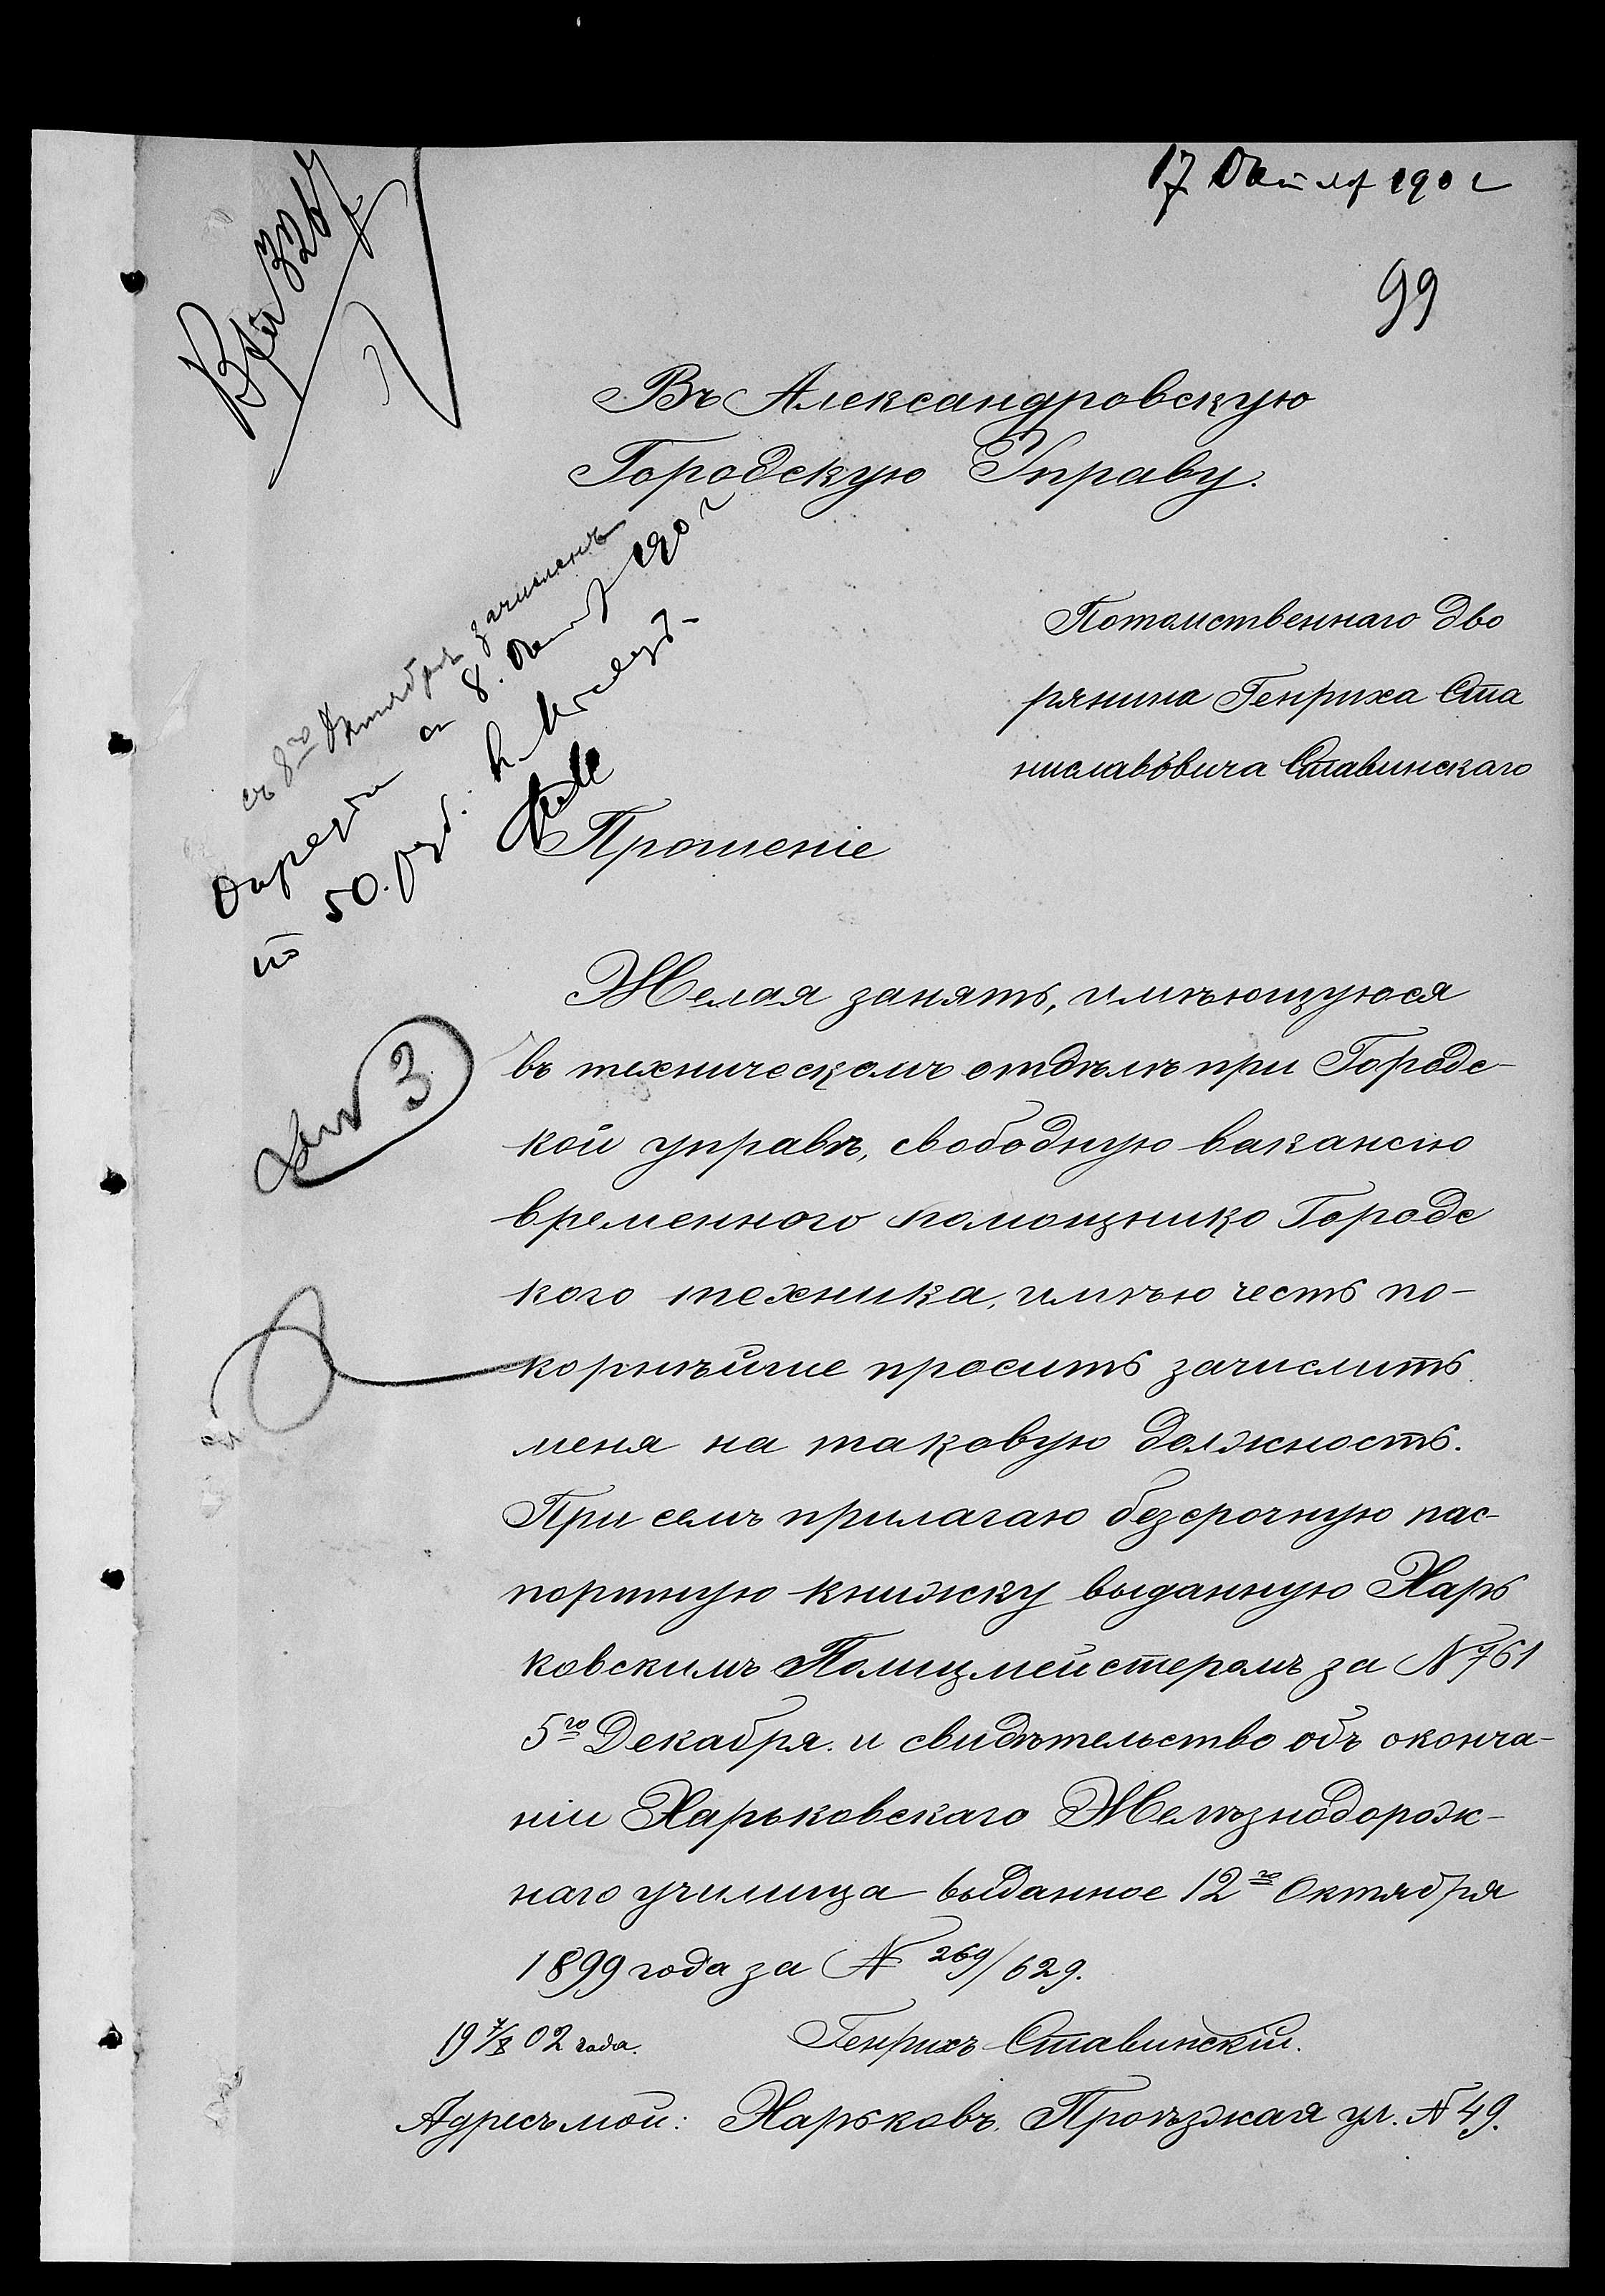 17 Октяб 1902
99
Вх № 3267
Въ Александровскую
Городскую Управу.
съ 8го Октября зачисленъ
с 8. Октяб 1902
по 50. руб.
Потомственнаго дво
рянина Генриха Ста
ниславовича Ставинскаго
Прошеніе
Желая занять, имѣющуюся
въ техническомъ отдѣлѣ при Городс-
кой управѣ, свободную вакансію
временного помощника Городс
кого техника, имѣю честь по-
корнѣйше просить зачислить
меня на таковую должность.
При семъ прилагаю безсрочную пас-
портную книжку выданную Харь
ковскимъ Полицмейстеромъ за № 761
5го Декабря. и свидѣтельство объ оконча-
ніи Харьковскаго Желѣзнодорож-
наго училища выданное 12го Октября
1899 года за № 269/629.
19 7/X 02 года. Генрихъ Ставинскій.
Адресъ мой: Харьковъ, Проѣзжая ул. № 49.
3